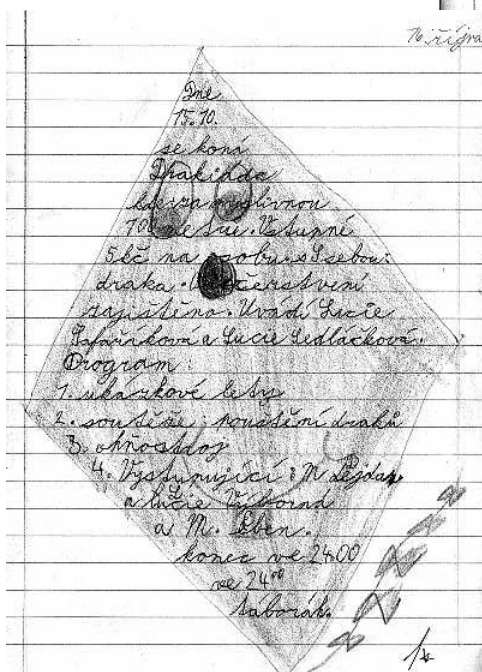 16. října
Dne
15.10.
se koná
Drakiáda
za myslivnou
Vstupné
5kč na osobu. s Ssebou:
draka. Občerstvení
zajištěno. Uvádí Lucie
Šafaříková a Lucie Sedláčková.
Program:
1. ukázkové lety
2. soutěže: pouštění draků
3. ohňostroj
4. Vystupující: M Dejdar
a Lucie Výborná
a M. Eben.
konec ve 24.00
ve 24⁰⁰
taborák.